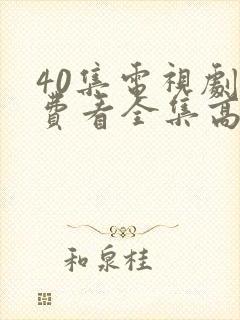 40集電視劇
費看全集高
和泉桂